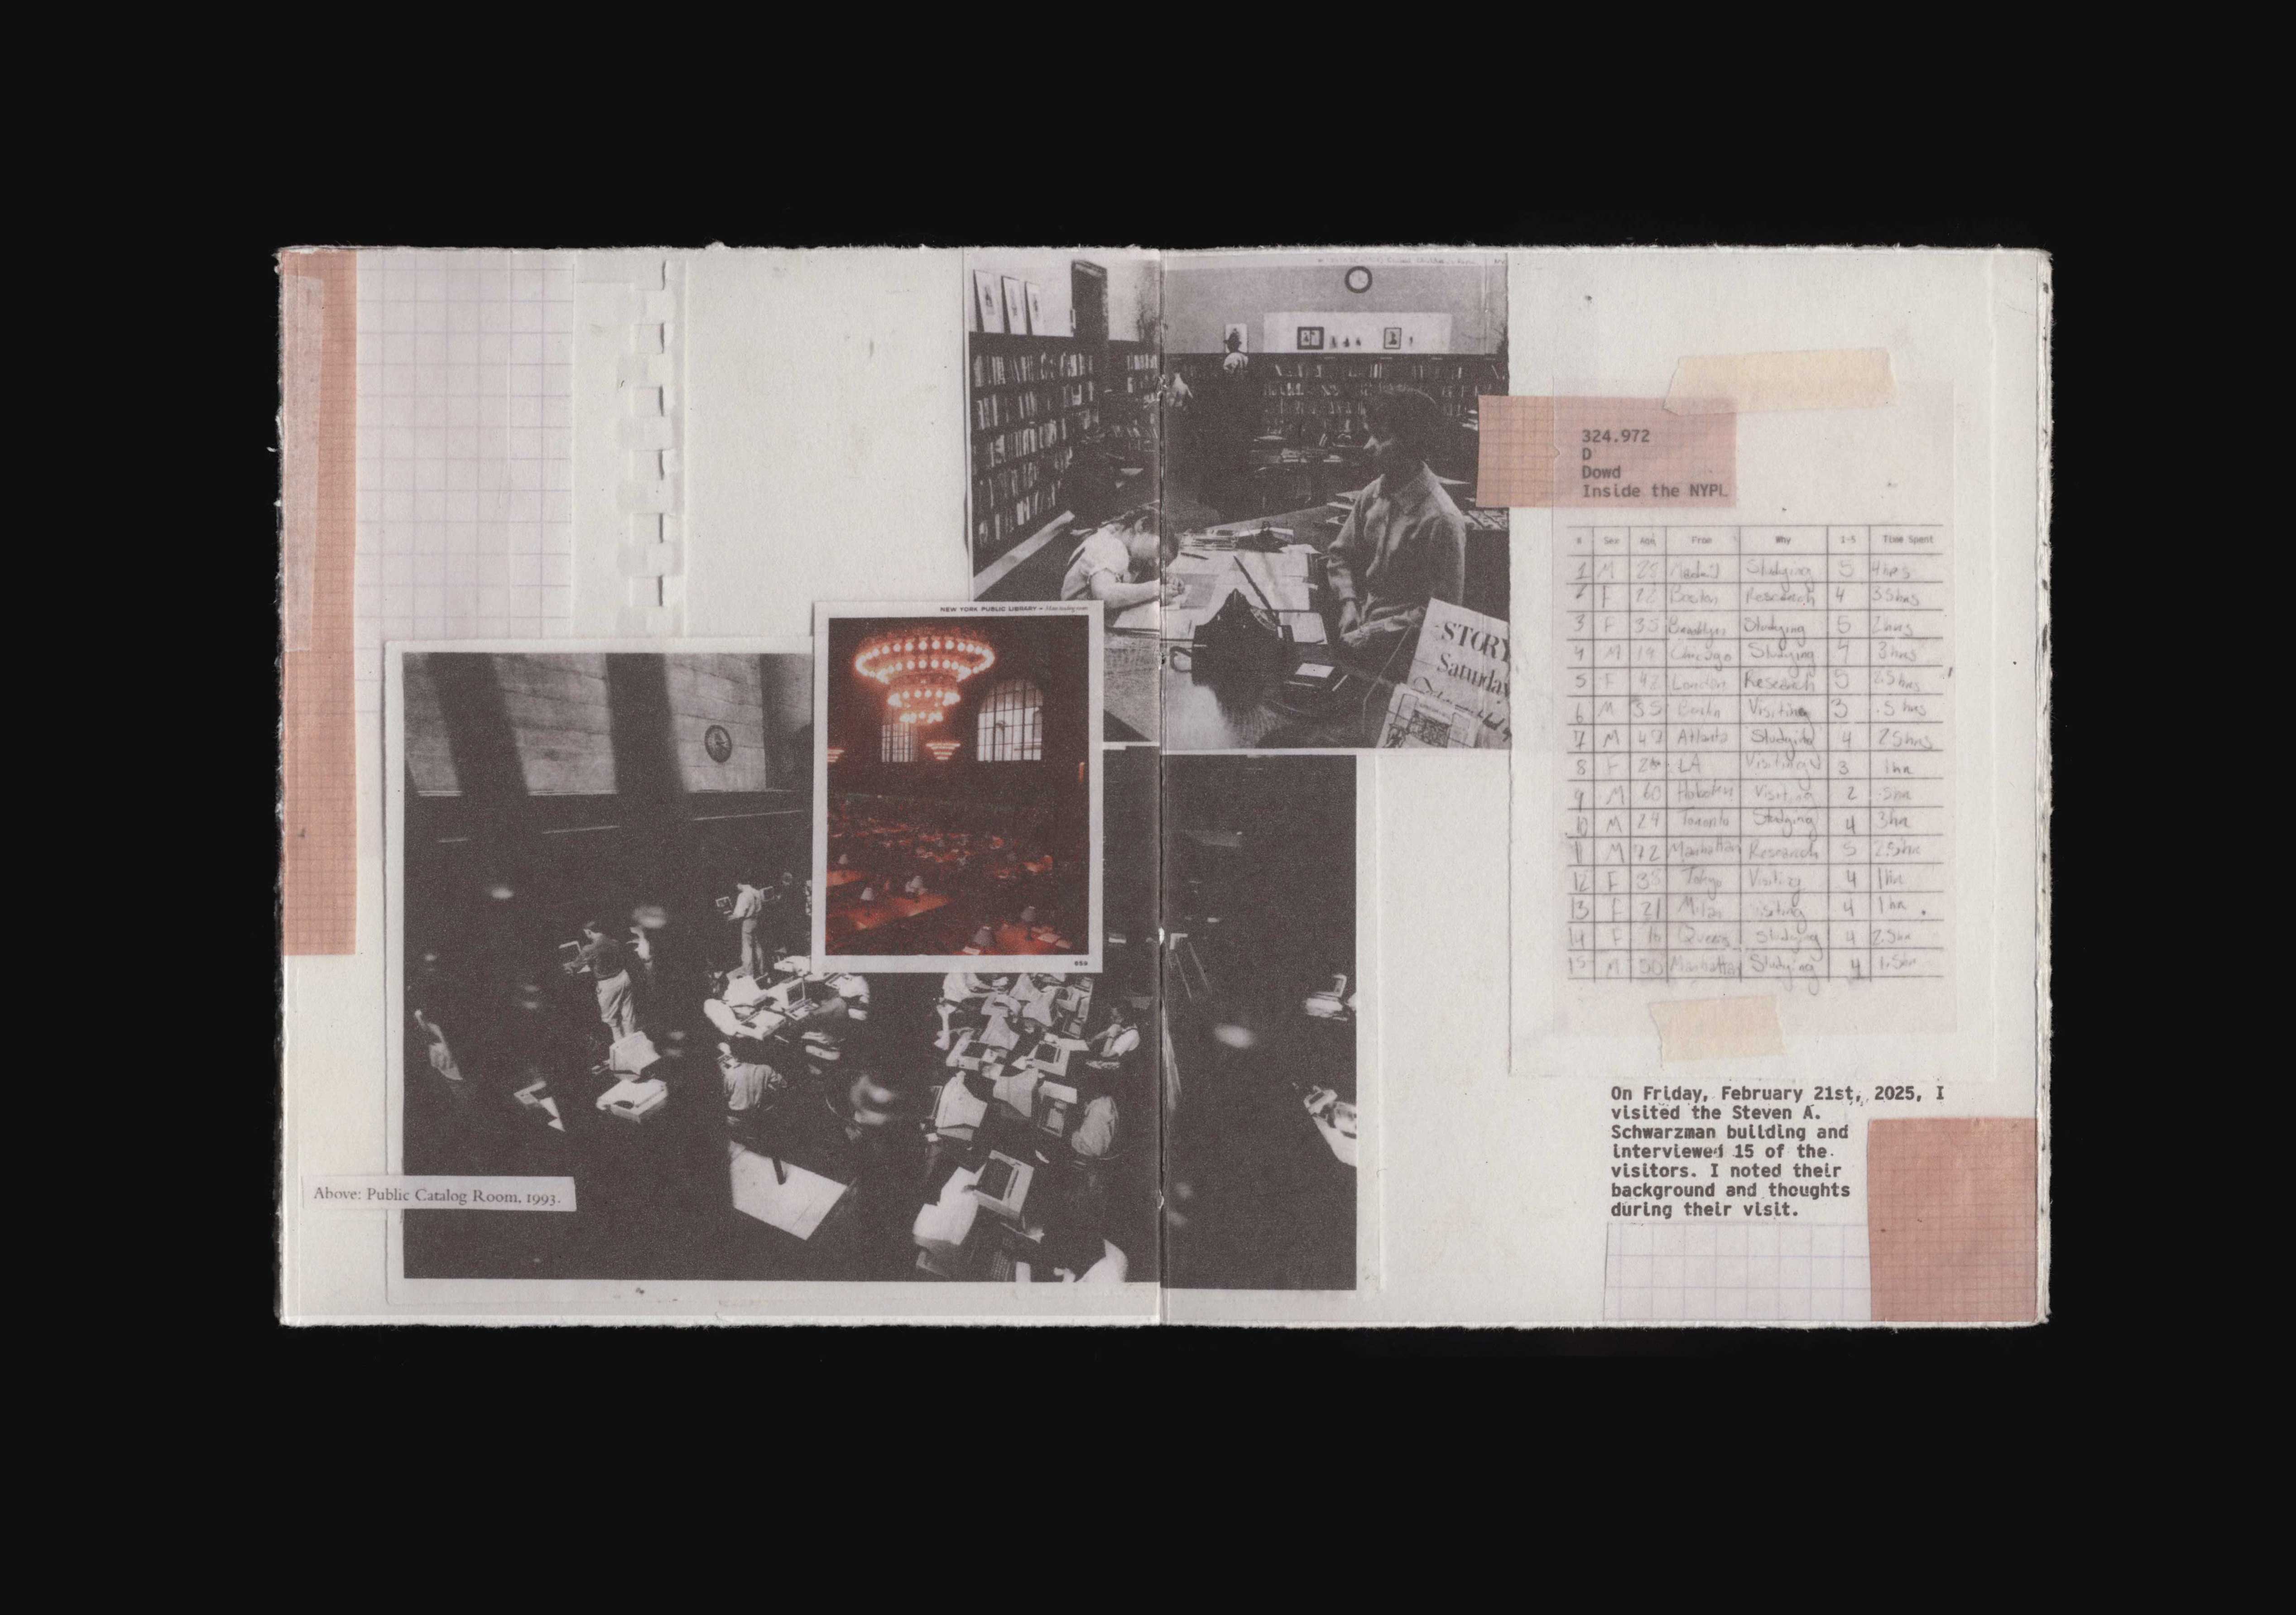 NEW YORK PUBLIC LIBRARY — Main reading room
659
STORY
Saturday
Above: Public Catalog Room, 1993.
324.972
D
Dowd
Inside the NYPL
# Sex Age From Why 1-5 Time Spent
1 M 25 Madrid Studying 5 4hrs
2 F 22 Boston Research 4 3.5hrs
3 F 35 Brooklyn Studying 5 2hrs
4 M 19 Chicago Studying 4 3hrs
5 F 42 London Research 5 2.5hrs
6 M 35 Visiting 3 .5 hrs
7 M 47 Atlanta Studying 4 2.5hrs
8 F LA Visiting 3 1hr
9 M 60 Hoboken Visiting 2 .5hr
10 M 24 Toronto Studying 4 3hr
11 M 72 Manhattan Research 5 2.5hr
12 F 33 Tokyo Visiting 4 1hr
13 F 21 Milan Visiting 4 1hr
14 F 16 Queens Studying 4 2.5hr
15 M 50 Manhattan Studying 4 1.5hr
On Friday, February 21st, 2025, I
visited the Steven A.
Schwarzman building and
interviewed 15 of the
visitors. I noted their
background and thoughts
during their visit.